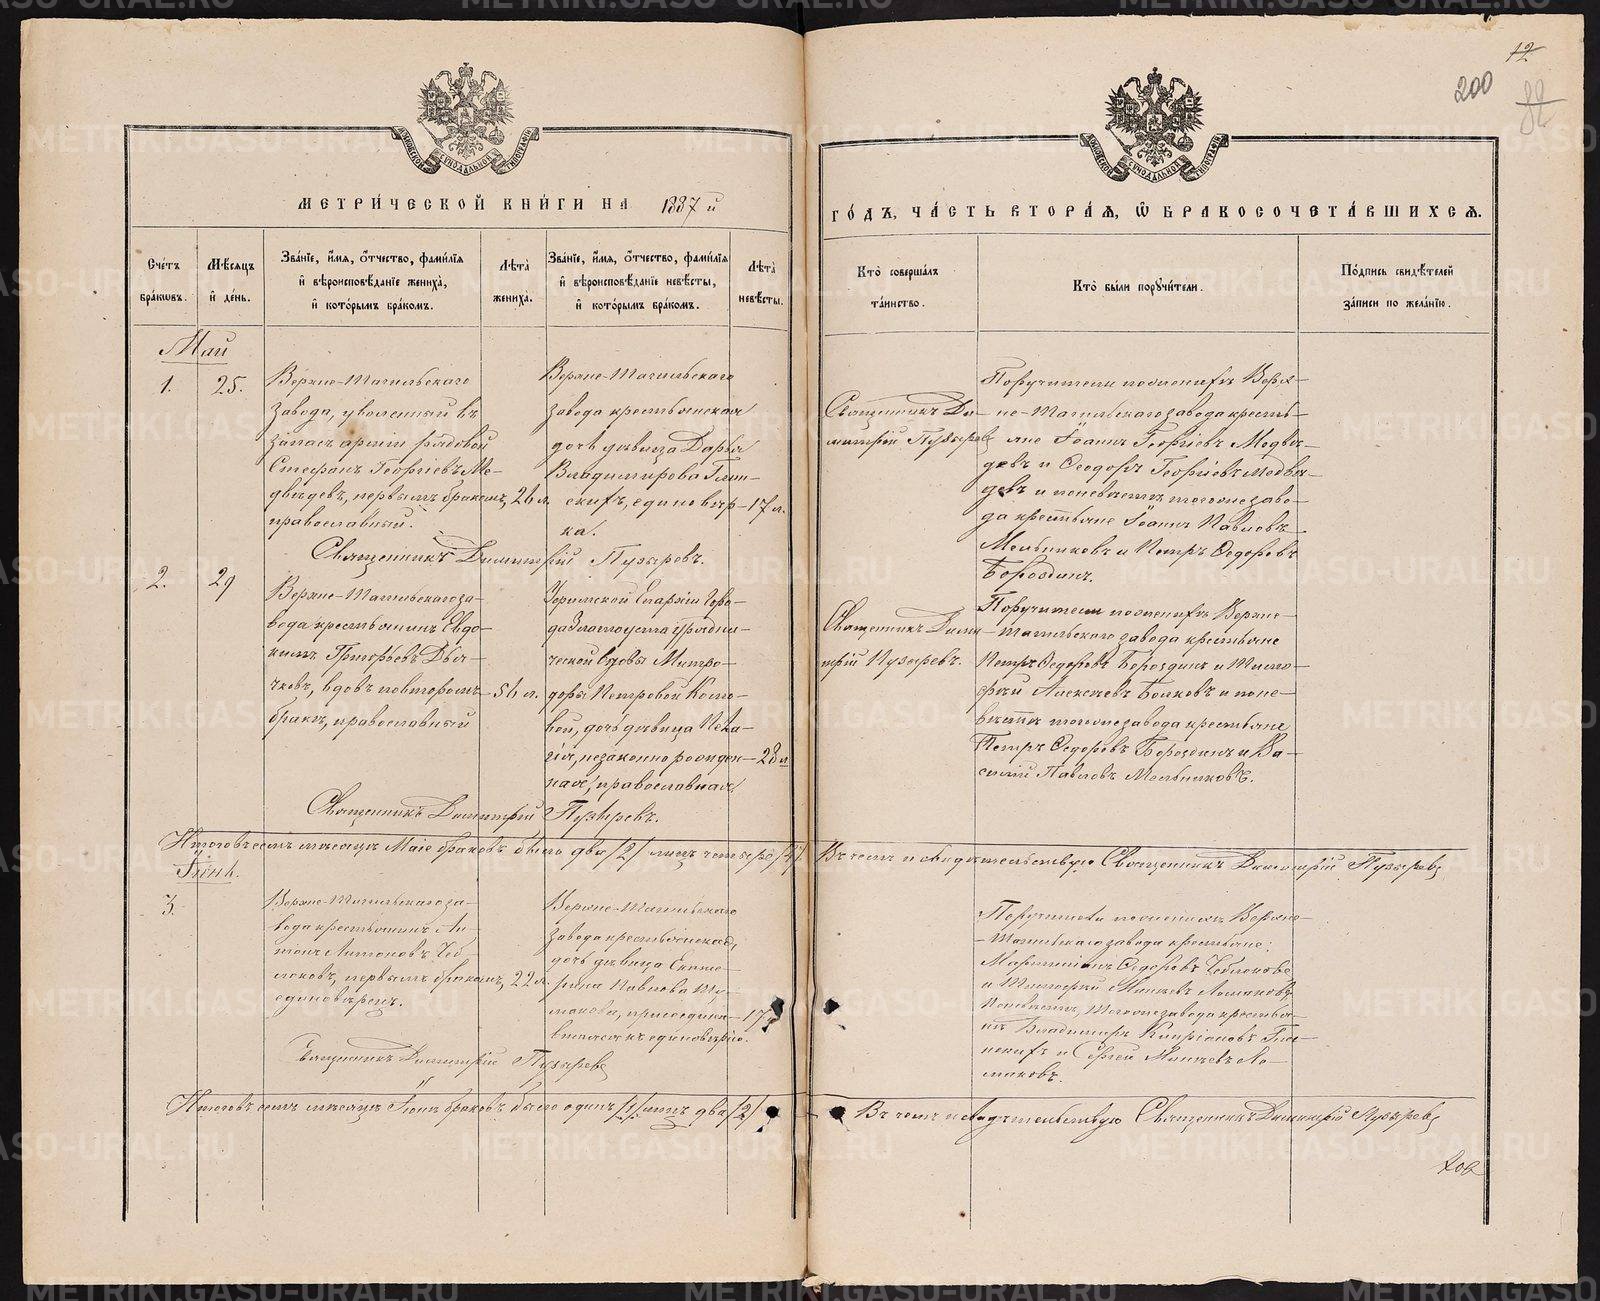 12
200
82
МОСКОВСКОЙ СѴНОДАЛЬНОЙ ТИПОГРАФІИ
МОСКОВСКОЙ СѴНОДАЛЬНОЙ ТИПОГРАФІИ
МЕТРИ́ЧЕСКОЙ КНИ́ГИ НА 1887 й
ГО́ДЪ, ЧА́СТЬ ВТОРА́Я, Ѡ БРАКОСОЧЕТА́ВШИХСЯ.
Сче́тъ бра́ковъ.
Мѣ́сяцъ и де́нь.
Зва́нїе, и́мя, о́тчество, фами́лїя и вѣроисповѣ́данїе жениха̀, и кото́рымъ бра́комъ.
Лѣта̀ жениха̀.
Зва́нїе, и́мя, о́тчество, фами́лїя и вѣроисповѣ́данїе невѣ́сты, и кото́рымъ бра́комъ.
Лѣта̀ невѣ́сты.
Кто̀ соверша́лъ та́инство.
Кто̀ бы́ли поручи́тели.
По́дпись свидѣ́телей за́писи по жела́нїю.
Май
1.
25.
Верхне-Тагильскаго
завода, уволенный въ
запасъ арміи рядовой
Стефанъ Георгіевъ Ме-
двѣдевъ, первымъ бракомъ,
православный.
26 л.
Верхне-Тагильскаго
завода крестьянская
дочь дѣвица Дарья
Владимірова
единовѣр-
ка.
17 л.
Священникъ Ди-
митрій Пузыревъ
Поручители по женихѣ Верх-
не-Тагильскаго завода кресть-
яне Іоаннъ Георгіевъ Медвѣ-
девъ и Ѳеодоръ Георгіевъ Медвѣ-
девъ и по невѣстѣ тогоже заво-
да крестьяне Іоаннъ Павловъ
Мельниковъ и Петръ Ѳедоровъ
Бороздинъ.
Священникъ Димитрій Пузыревъ.
2.
29
Верхне-Тагильскаго за-
вода крестьянинъ Евдо-
кимъ Григорьевъ Дья-
чковъ, вдовъ повторомъ
бракѣ, православный
56 л.
Уфимской Епархіи горо-
да Златоуста урядни-
ческой вдовы Митро-
доры Петровой
дочь дѣвица Пела-
гія, незаконнорожден-
ная, православная
28 л
Священникъ Дими-
трій Пузыревъ.
Поручители по женихѣ Верхне-
Тагильскаго завода крестьяне
Петръ Ѳедоровъ Бороздинъ и Тимо-
фей Алексѣевъ и поне-
вѣстѣ тогоже завода крестьяне
Петръ Ѳедоровъ Бороздинъ и Ва-
силій Павловъ Мельниковъ.
Священникъ Димитрій Пузыревъ.
Итого въ семъ мѣсяцѣ Маіе браковъ было два /2/ лицъ четыре /4/.
Въ чемъ и свидѣтельствую Священникъ Димитрій Пузыревъ
Іюнь.
3.
Верхне-Тагильскаго за-
вода крестьянинъ Ан-
тонъ Антоновъ
первымъ бракомъ,
единовѣрецъ.
22 л.
Верхне-Тагильскаго
завода крестьянская
дочь дѣвица Екате-
рина Павлова
присоедини-
вшаяся къ единовѣрію.
17
Поручители по женихѣ Верхне-
-Тагильскаго завода крестьяне:
Ѳедоровъ
и Тимофей
Поневѣстѣ, тогоже завода крестья-
не Владиміръ Кипріановъ
и Сергей
Священникъ Димитрій Пузыревъ
Итого въ семъ мѣсяцѣ Іюнѣ браковъ было одинъ /1/ лицъ два /2/
Въ чемъ и свидѣтельствую Священникъ Димитрій Пузыревъ